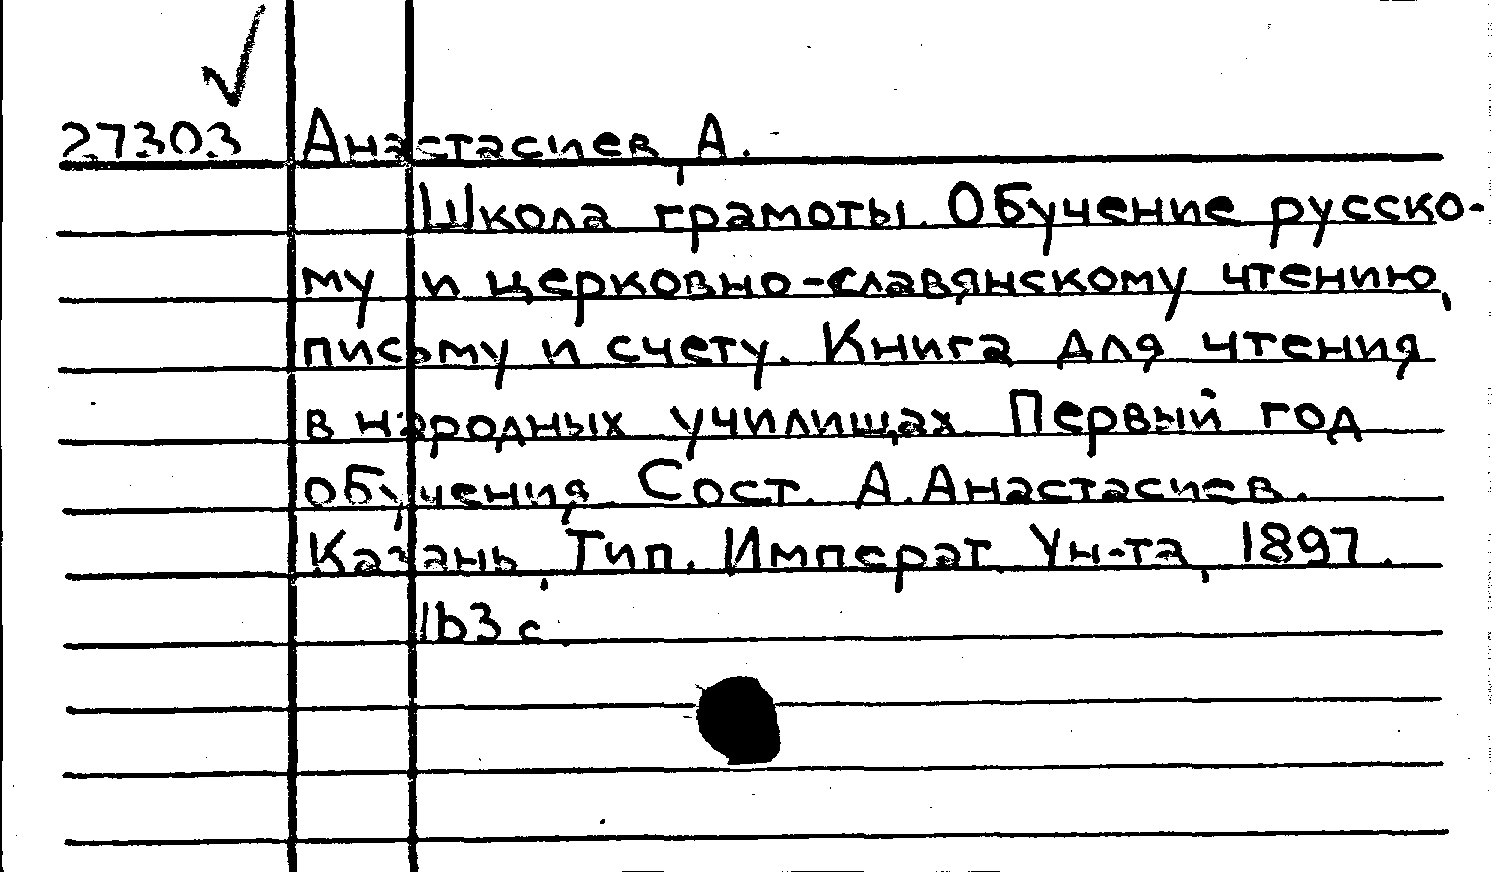 27303 Анастасиев, А.
Школа грамоты. Обучение русско-
му и церковно-славянскому чтению,
письму и счету. Книга для чтения
в народных училищах. Первый год
обучения. Сост. А. Анастасиев.
Казань, Тип. Императ. Ун-та, 1897.
163 с.